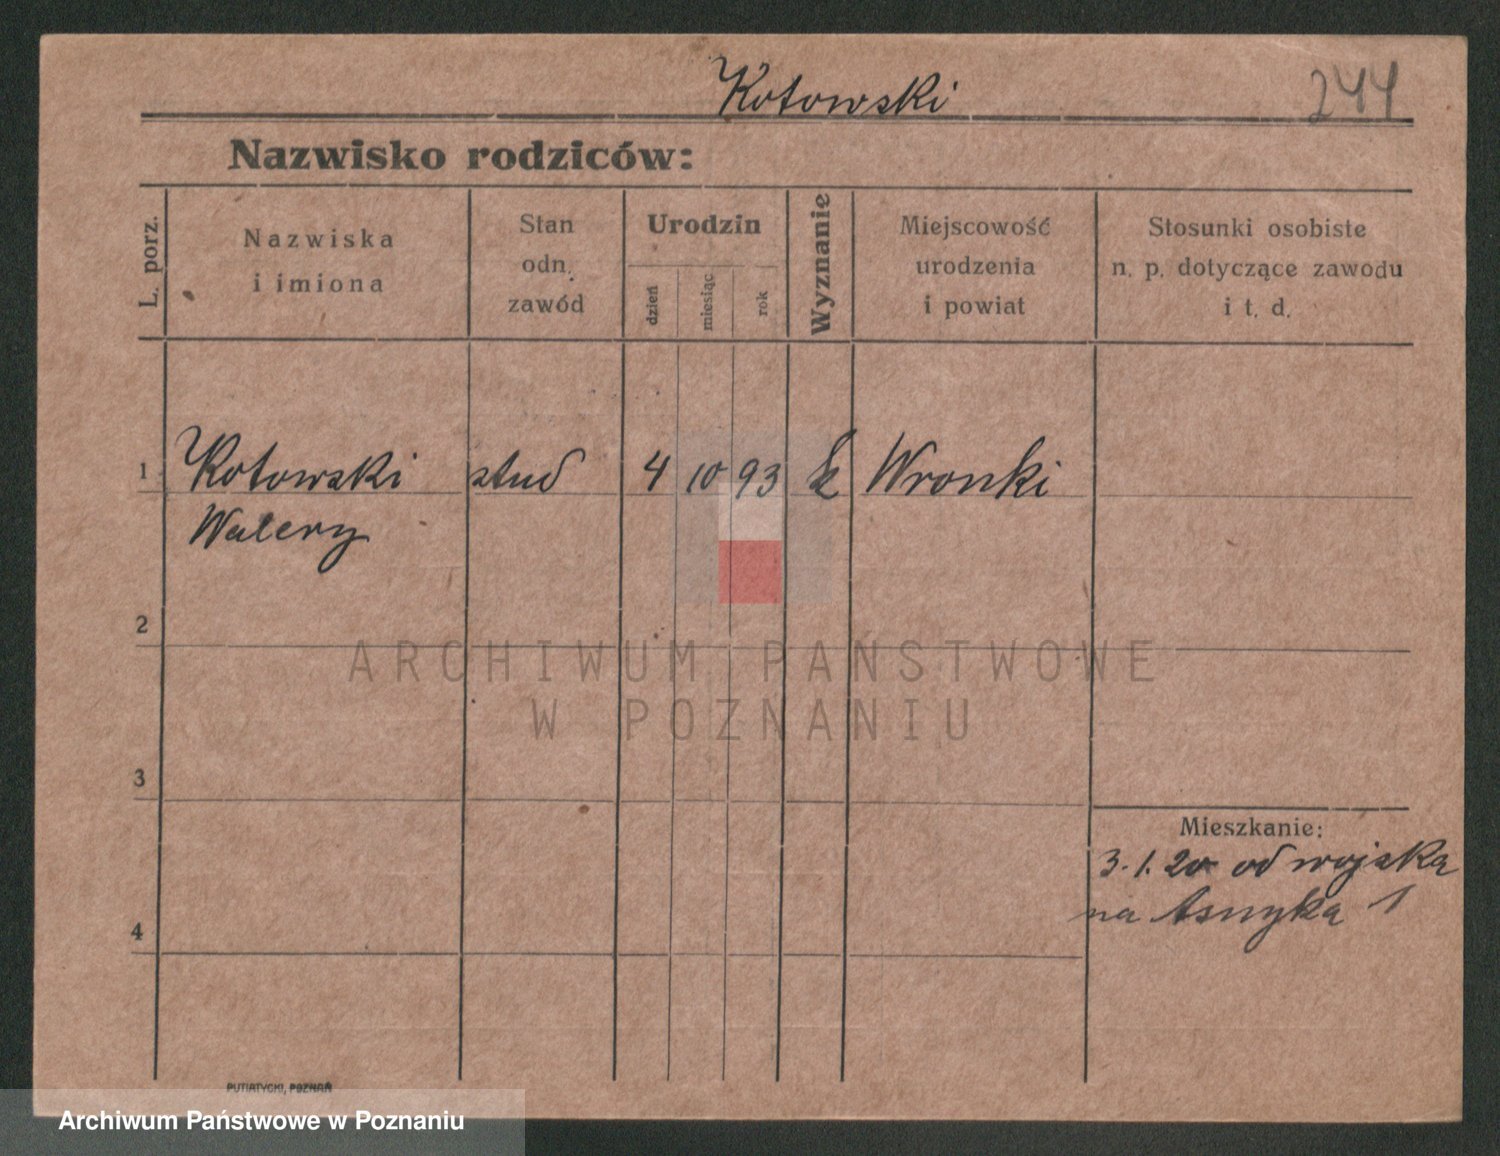 Kotowski
244
Nazwisko rodziców:
L. porz.
Nazwiska
i imiona
Stan
odn.
zawód
Urodzin
dzień
miesiąc
rok
Wyznanie
Miejscowość
urodzenia
i powiat
Stosunki osobiste
n. p. dotyczące zawodu
i t. d.
1 Kotowski stud 4 10 93 k Wronki
Walery
2
ARCHIWUM PAŃSTWOWE
W POZNANIU
3
Mieszkanie:
3.1.20 od wojska
na Asnyka 1
4
PUTIATYCKI, POZNAŃ
Archiwum Państwowe w Poznaniu